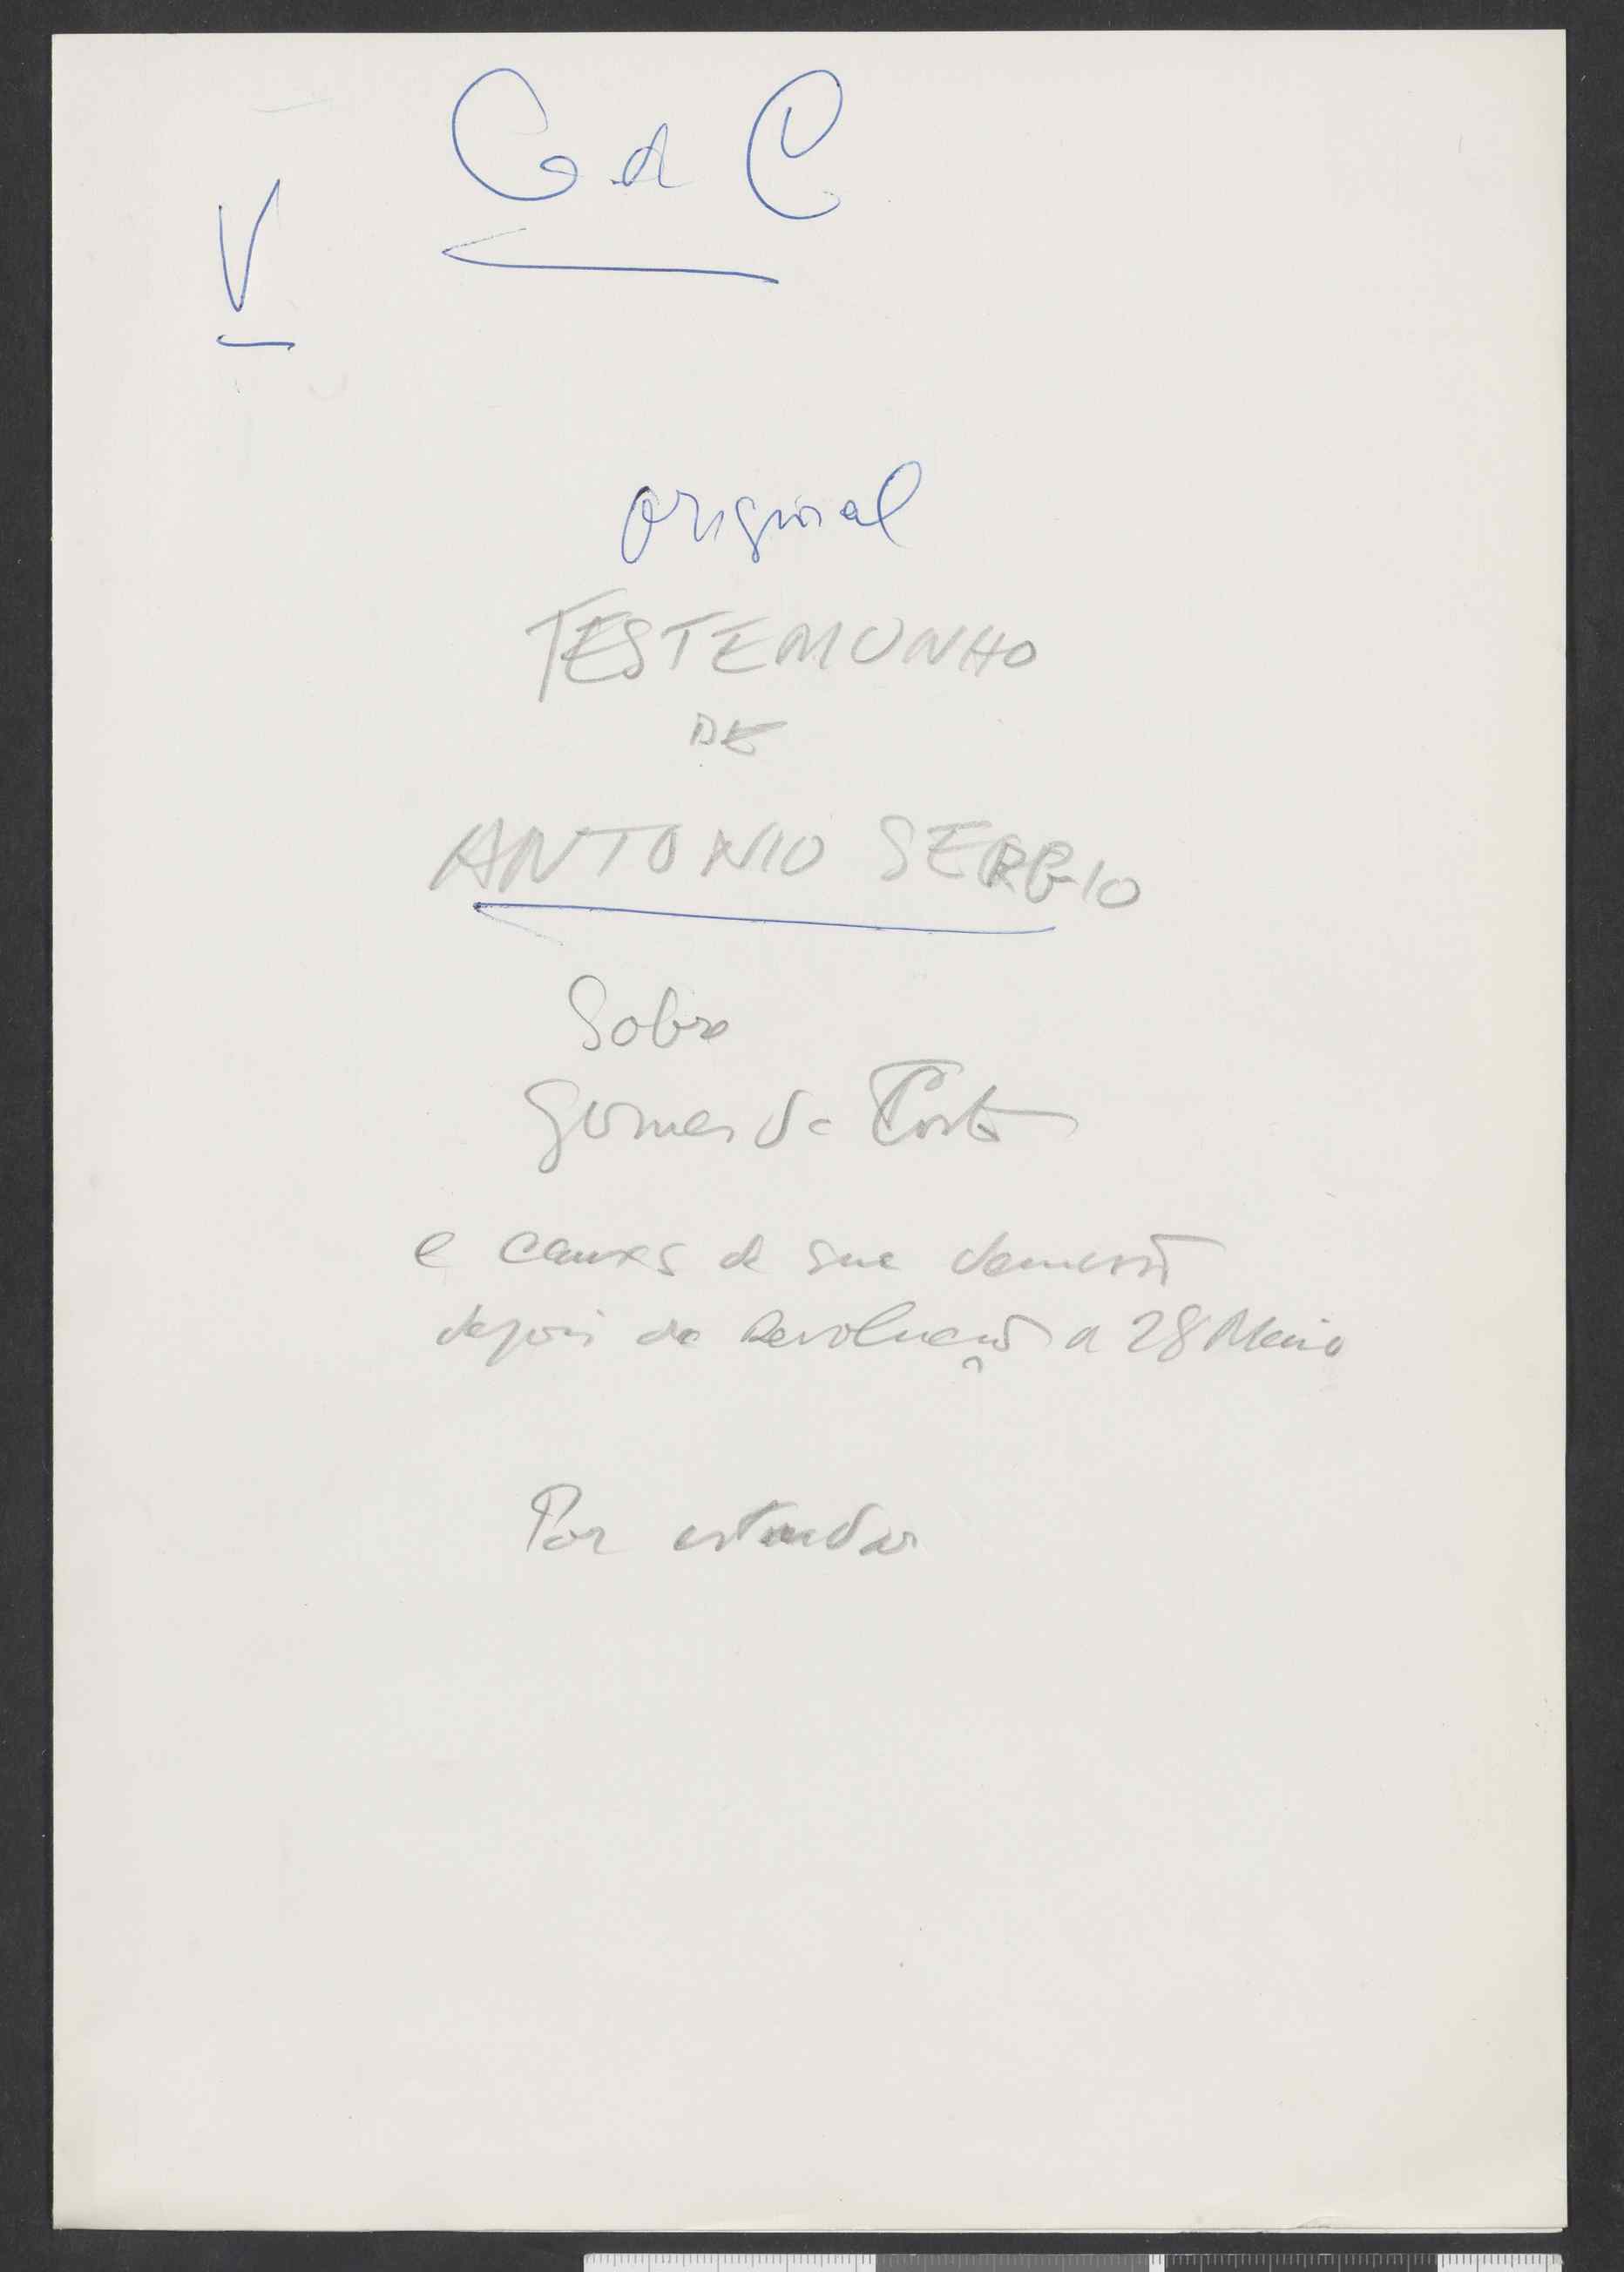 G d C
V
original
TESTEMUNHO
DE
ANTONIO SERGIO
Sobre
Gomes da Costa
e causas da sua demissão
depois da Revolução de 28 Maio
Por estudar